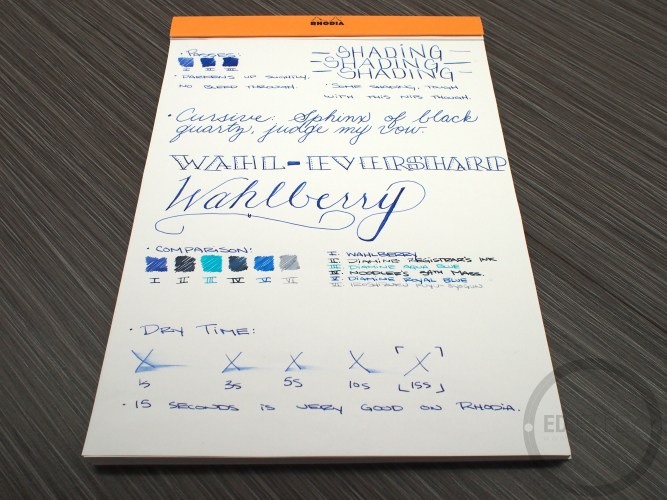 RHODIA
· PASSES:
I II III
· DARKENS UP SLIGHTLY.
NO BLEED THROUGH.
- SHADING -
- SHADING -
SHADING
· SOME SHADING, TOUGH
WITH THIS NIB THOUGH.
· Cursive: Sphinx of black
quartz, judge my vow.
WAHL-EVERSHARP
Wahlberry
· COMPARISON:
I II III IV V VI
I. WAHLBERRY
II. DIAMINE REGISTRAR'S INK
III. DIAMINE AQUA BLUE
IV. NOODLER'S 54TH MASS.
V. DIAMINE ROYAL BLUE
VI.
· DRY TIME:
X X X X X
1s 3s 5s 10s 15s
· 15 SECONDS IS VERY GOOD ON RHODIA.